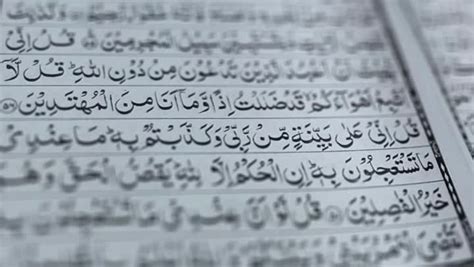 سَبِيْلُ الْمُجْرِمِيْنَ قُلْ اِنِّيْ
اَعْبُدَ الَّذِيْنَ تَدْعُوْنَ مِنْ دُوْنِ اللّٰهِ ؕ قُلْ لَّاۤ
اَتَّبِعُ اَهْوَآءَكُمْ ۙ قَدْ ضَلَلْتُ اِذًا وَّمَاۤ اَنَا مِنَ الْمُهْتَدِيْنَ ۝۵۶
قُلْ اِنِّيْ عَلٰى بَيِّنَةٍ مِّنْ رَّبِّيْ وَكَذَّبْتُمْ بِهٖ ؕ مَا عِنْدِيْ
مَا تَسْتَعْجِلُوْنَ بِهٖ ؕ اِنِ الْحُكْمُ اِلَّا لِلّٰهِ ؕ يَقُصُّ الْحَقَّ وَهُوَ
خَيْرُ الْفٰصِلِيْنَ قُلْ لَّوْ اَنَّ عِنْدِيْ مَا تَسْتَعْجِلُوْنَ
لَقُضِيَ الْاَمْرُ بَيْنِيْ